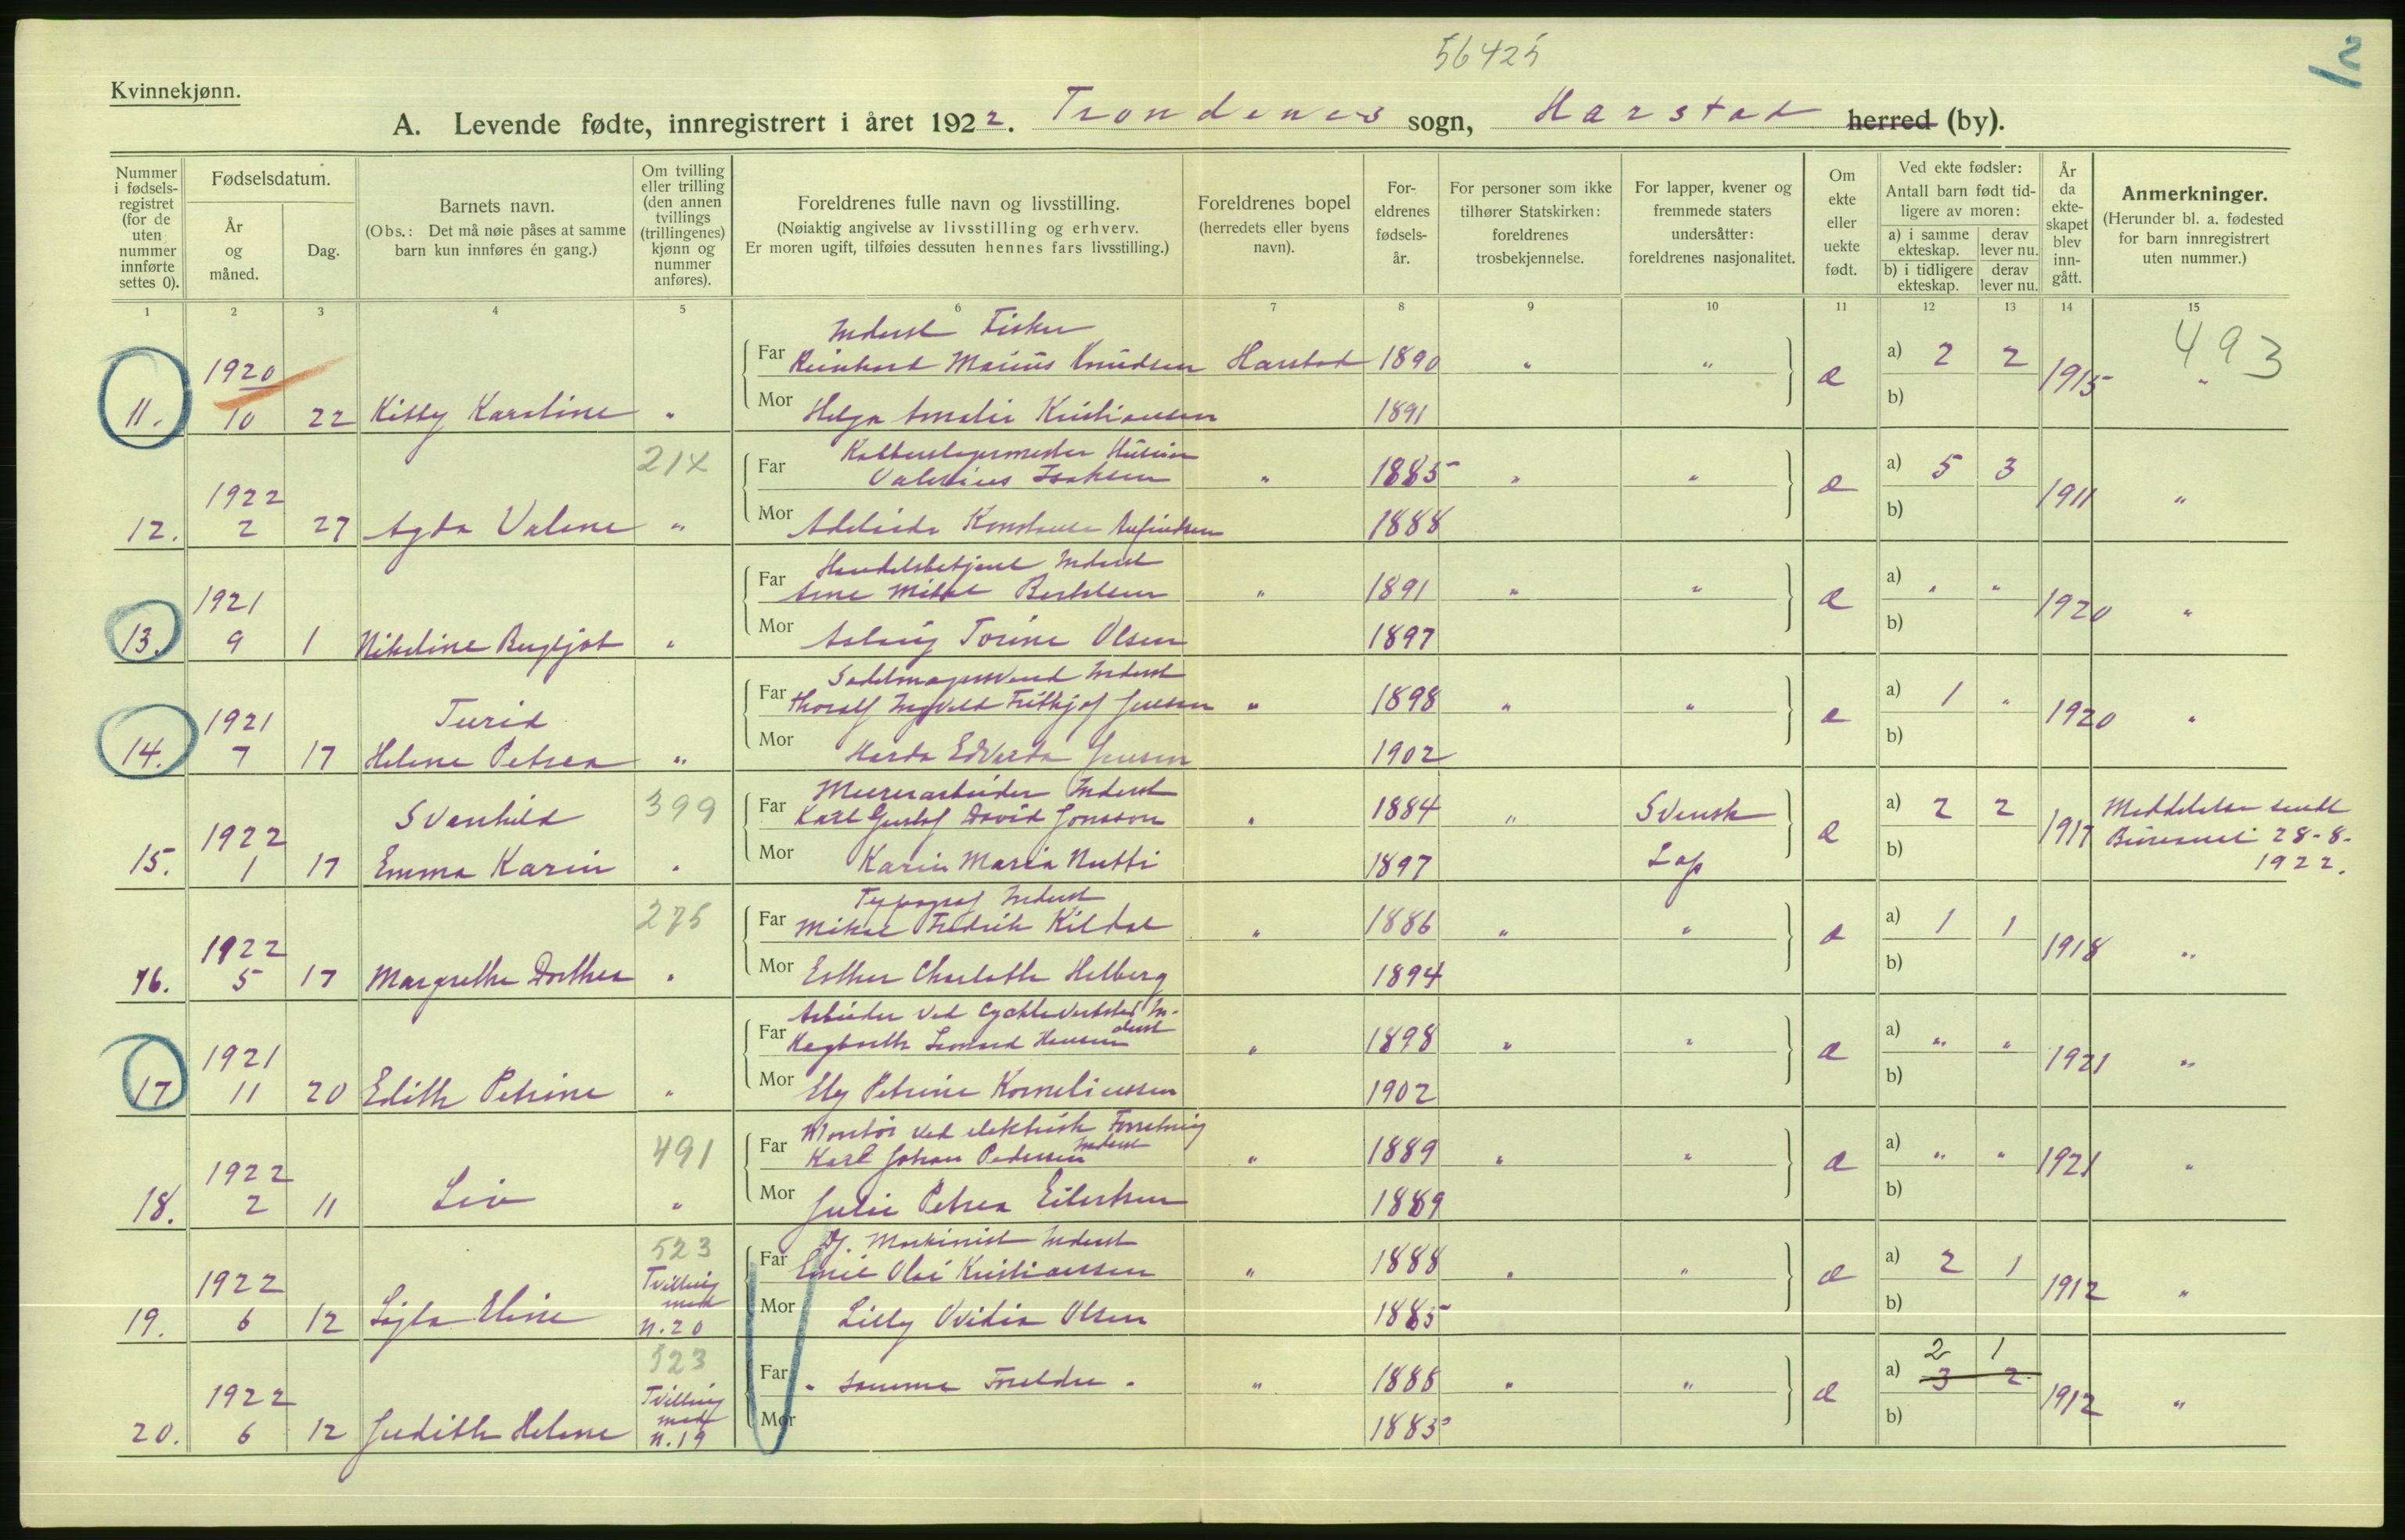 56425
12
Kvinnekjønn.
A. Levende fødte, innregistrert i året 1922. Trondenes sogn, Harstad herred (by).
Nummer i fødsels-registret (for de uten nummer innførte settes 0).
Fødselsdatum.
År og måned.
Dag.
Barnets navn.
(Obs.: Det må nøie påses at samme barn kun innføres én gang.)
Om tvilling eller trilling (den annen tvillings (trillingenes) kjønn og nummer anføres).
Foreldrenes fulle navn og livsstilling.
(Nøiaktig angivelse av livsstilling og erhverv.
Er moren ugift, tilføies dessuten hennes fars livsstilling.)
Foreldrenes bopel
(herredets eller byens navn).
For-eldrenes fødsels-år.
For personer som ikke tilhører Statskirken: foreldrenes trosbekjennelse.
For lapper, kvener og fremmede staters undersåtter: foreldrenes nasjonalitet.
Om ekte eller uekte født.
Ved ekte fødsler:
Antall barn født tid-ligere av moren:
a) i samme ekteskap.
derav lever nu.
b) i tidligere ekteskap.
derav lever nu.
År da ekte-skapet blev inn-gått.
Anmerkninger.
(Herunder bl. a. fødested for barn innregistrert uten nummer.)
1 2 3 4 5 6 7 8 9 10 11 12 13 14 15
Inderst Fisker 493
1920 Far Reinhard Marius Knudsen Harstad 1890 " " a) 2 2
11. 10 22 Kitty Karoline " Mor Helga Amalie Kristiansen 1891 æ b) 1915 "
214
1922 Far Valerius Isaksen " 1885 " " a) 5 3
12. 2 27 Agda Valene " Mor Konstanse 1888 æ b) 1911 "
Handelsbetjent Inderst
1921 Far Arne Mikal " 1891 " " a) " "
13. 9 1 Nikoline Bergljot " Mor Aslaug Torine Olsen 1897 æ b) 1920 "
Sadelmagersvend Inderst
1921 Turid Far Thoralf Ingvald Frithjof Jensen " 1898 " " a) 1 "
14. 7 17 Helene Petrea " Mor Edvarda Jensen 1902 æ b) 1920 "
399 Murerarbeider Inderst
1922 Svanhild Far Karl Gustaf David Jonsson " 1884 " Svensk a) 2 2 Meddelelse sendt
15. 1 17 Emma Karin " Mor Karin Maria Nutti 1897 Lap æ b) 1917 28-8-
1922.
275 Typograf Inderst
1922 Far Mikal Fredrik Kildal " 1886 " " a) 1 1
16. 5 17 Margrethe Dorthea " Mor Esther Charlotte Helberg 1894 æ b) 1918 "
Arbeider ved Cykkleverksted In-
1921 Far Leonard Hansen derst " 1898 " " a) " "
17 11 20 Edith Petrine " Mor Petrine Korneliussen 1902 æ b) 1921 "
491 Montør ved elektrisk Forretning
1922 Far Karl Johan Pedersen Inderst " 1889 " " a) " "
18. 2 11 Liv " Mor Julie Petrea Eilertsen 1889 æ b) 1921 "
523 Maskinist Inderst
1922 Tvilling Far Emil Olai Kristiansen " 1888 " " a) 2 1
19. 6 12 Eline med N. 20 Mor Lilly Ovidia Olsen 1885 æ b) 1912 "
523 2 1
1922 Tvilling Far " samme Foreldre " " 1888 " " a) 3 2
20. 6 12 Judith Helene med N. 19 Mor 1885 æ b) 1912 "